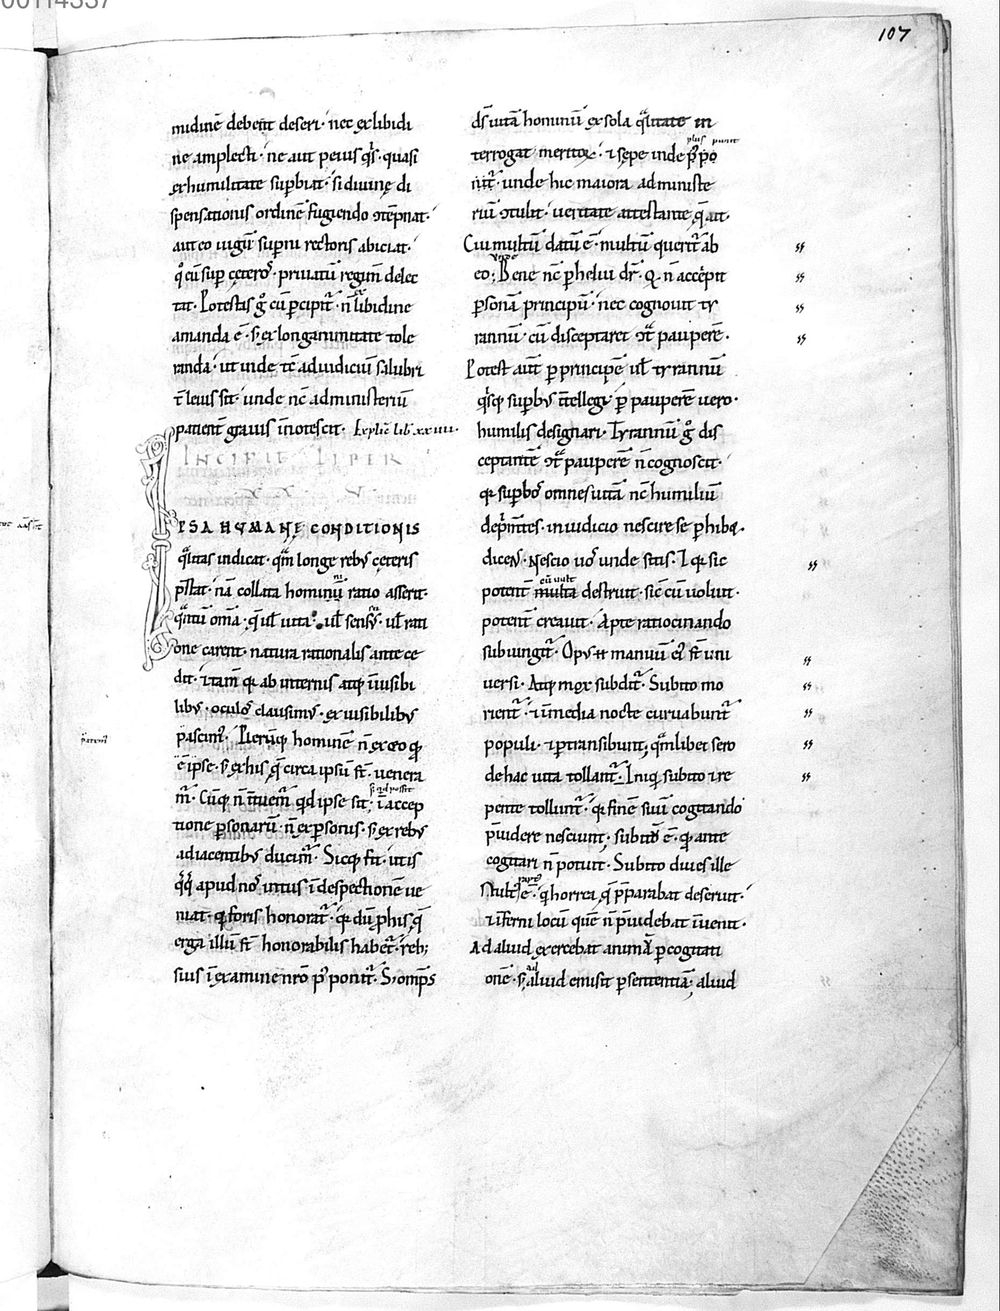 107
nudinē debent deseri · nec ex libidi
ne amplecti · ne aut peius q̄s · quasi
ex humilitate suꝑbiat · si diuinę di
spensationis ordinē fugiendo ↄtēpnat ·
aut eo iugū suꝑni rectoris abiciat ·
q̊ eū suꝑ cęteros · priuatū regim̄ delec
tat · Potestas g̊ cū ꝑcipit᷑ · n̄ libidine
amanda ē · s; ex longanimitate tole
randa · ut inde tc̄ ad iudiciū salubri
t̄ leuis sit · unde nc̄ ad ministeriū
patient̄ grauis īnotescit · Explic̄ lib̄ xxiiii ·
INCIPIT LIBER
XX V
IPSA HUMANĘ CONDITIONIS
q̄litas indicat · qm̄ longe rebꝰ cęteris
p̄stat · nā collata hominū ratio asserit ·
q̄ntū om̄a · q̄ ul̄ uita · ul̄ sensu · ul̄ rati
one carent · natura rationalis ante ce
dit · ⁊ tam̄ qꝛ ab internis atq; īuisibi
libꝰ · oculos clausimꝰ · ex uisibilibꝰ
pascim᷑ · Pleruq; hominē n̄ ex eo qđ
ē ipse · s; ex his · q̄ circa ipsū st̄ · uenera
m᷑ · Cūq; n̄ ītuem᷑ qd ipse sit · ī accep
tione ꝑsonarū · n̄ ex ꝑsonis · s; ex rebꝰ
adiacentibꝰ ducim᷑ · Sicq; fit · ut is
q̄q̄ apud nos intus ī despectionē ue
niat · qđ foris honorat᷑ · qꝛ dū ꝓ his q̄
erga illū st̄ honorabilis habet᷑ · reb;
suis ī examine nr̄o p̄ ponit᷑ · S; omp̄s
ds̄ uitā hominū ex sola q̄litate in
terrogat meritoꝝ · ⁊ sępe inde
nit᷑ · unde hic maiora ad ministe
riū ↄtulit · ueritate attestante q̄ ait
Cui multū datū ē · multū querit᷑ ab
eo; Bene nc̄ ꝑ heliu dr̄ · Q n̄ accepit
ꝑsonā principū · nec cognouit ty
rannū · cū disceptaret ↄt̄ pauperē ·
Potest aut̄ ꝑ principē ul̄ tyrannū
q̄sq; suꝑbꝰ ītellegi · ꝑ pauperē uero ·
humilis designari · Tyrannū g̊ dis
ceptantē ↄt̄ pauperē n̄ cognoscit ·
qꝛ suꝑbos omnes uitā nc̄ humiliū
dep̄mtes · in iudicio nescire se ꝑhibꝫ ·
dicens · Nescio uos unde sitis · I qꝛ sic
potent̄ multa destruit · sic cū uoluit ·
potent̄ creauit · Apte ratiocinando
subiungit᷑ · Opꝰ manuū eiꝰ st̄ uni
uersi · Atq; mox subdit᷑ · Subito mo
rient᷑ · ⁊ ī media nocte curuabunt᷑
populi · ⁊ ꝑtransibunt; qm̄libet sero
de hac uita tollant᷑ · Iniqi subito ⁊ re
pente tollunt᷑ · qꝛ finē suū cogitando
p̄uidere nesciunt; subitū ē · qđ ante
cogitari n̄ potuit · Subito diues ille
stultꝰ ē · q horrea · q̄ p̄parabat deseruit ·
⁊ īferni locū quē n̄ p̄uidebat īuenit ·
Ad aliud exercebat animā ꝑ cogitati
onē · s; aliud emisit ꝑ sententiā · aliud